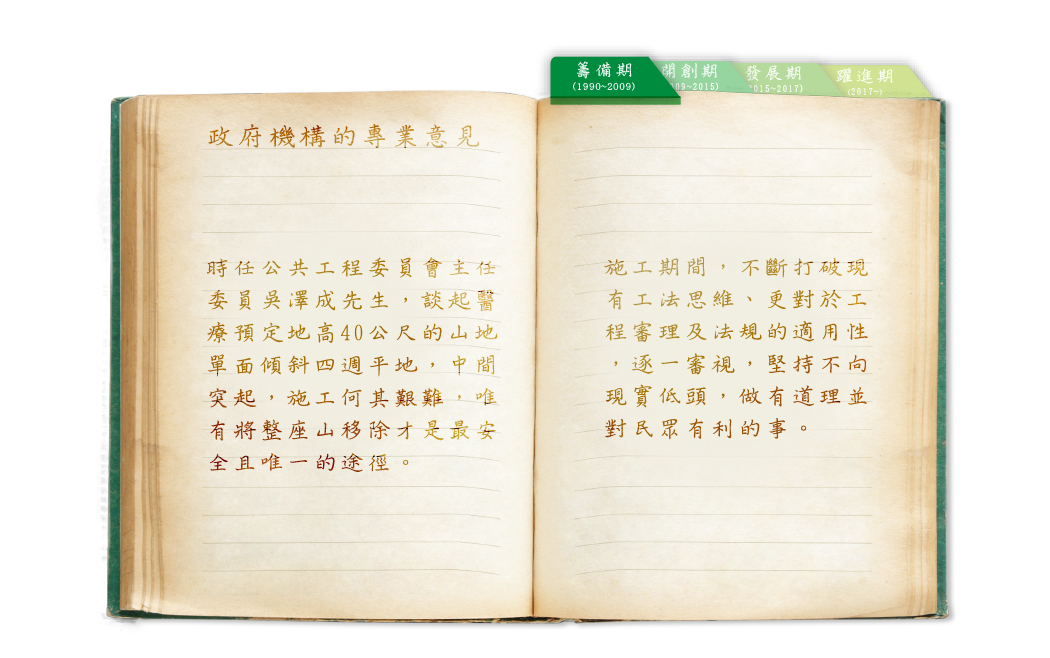 籌備期
(1990~2009)
開創期
09~2015)
發展期
015~2017)
躍進期
(2017~)
政府機構的專業意見
時任公共工程委員會主任
委員吳澤成先生，談起醫
療預定地高40公尺的山地
單面傾斜四週平地，中間
突起，施工何其艱難，唯
有將整座山移除才是最安
全且唯一的途徑。
施工期間，不斷打破現
有工法思維、更對於工
程審理及法規的適用性
，逐一審視，堅持不向
現實低頭，做有道理並
對民眾有利的事。